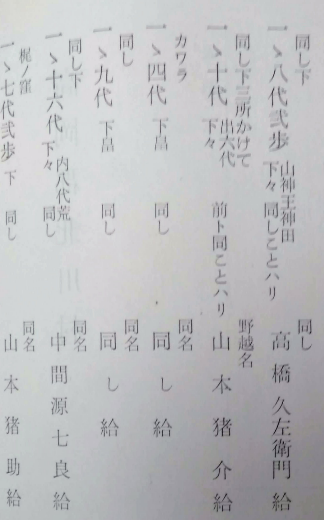 同し下 同し
一、八代弐歩 下々 山神王神田 同しことハリ 高橋久左衛門給
同し下三所かけて 野越名
一ゝ十代 出六代 下々 前ト同ことハリ 山本猪介給
カワラ 同名
一ゝ四代 下畠 同し 同し給
同し 同名
一ゝ九代 下畠 同し 同し給
同し下 同名
一ゝ十六代 下々 内八代荒 同し 中間源七良給
梶ノ窪 同名
一ゝ七代弐歩 下 同し 山本猪助給